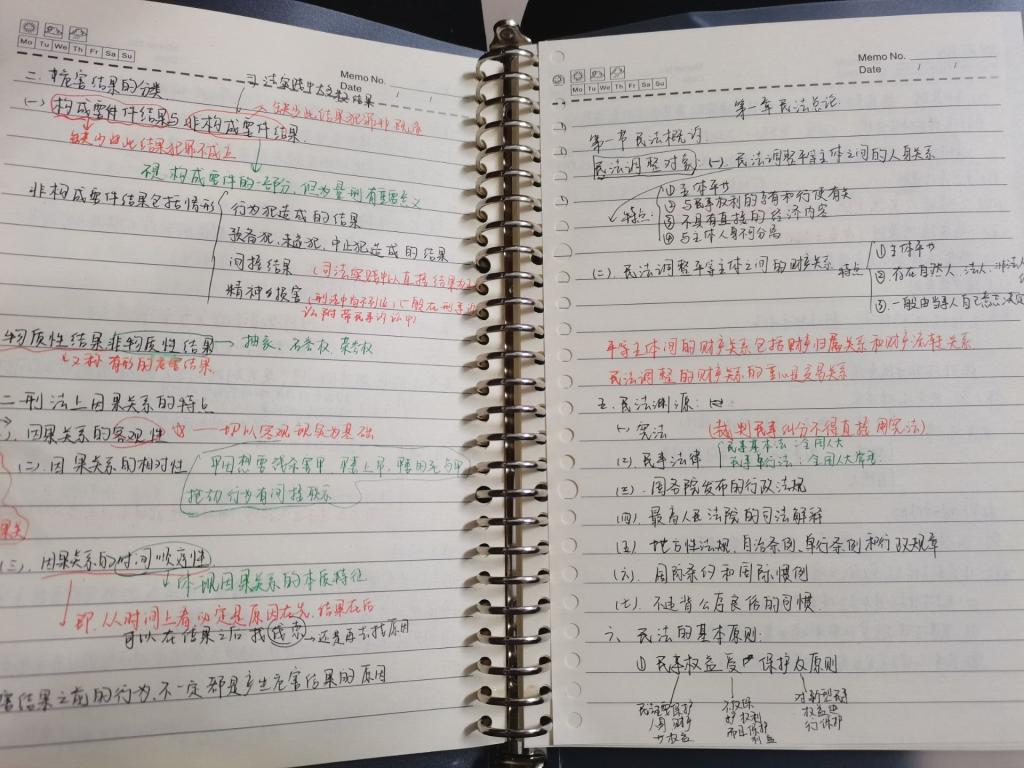 Mo Tu We Th Fr Sa Su
Memo No.
Date / /
二、危害结果的分类
司法实践中大多数结果
(一)构成要件结果与非构成要件结果
缺少此结果犯罪
缺少由此结果犯罪不成立
构成要件的一部分,但为量刑有重要意义
非构成要件结果包括情形
行为犯造成的结果
预备犯、未遂犯、中止犯造成的结果
间接结果 (司法实践中以直接结果为
精神损害 (刑法中 一般在刑事诉
讼附带民事诉讼中)
物质性结果非物质性结果 → 抽象、名誉权、
又称有形的危害结果
二 刑法上因果关系的特点
因果关系的客观性 一切以客观现实为基础
(二)因果关系的相对性
行为有间接联系
(三)因果关系的时间顺序性
体现因果关系的本质特征
即:从时间上看,必定是原因在先,结果在后
可以在结果之后找 还是再去找原因
害结果之前的行为,不一定都是产生危害结果的原因
Mo Tu We Th Fr Sa Su
Memo No.
Date / /
第一章 民法总论
第一节 民法概说
民法调整对象 (一) 民法调整平等主体之间的人身关系
特点:
① 主体平等
② 与民事权利的享有和行使有关
③ 不具有直接的经济内容
④ 与主体人身不可分离
(二) 民法调整平等主体之间的财产关系 特点
① 主体平等
② 存在自然人、法人、非法人
③ 一般由当事人自己意志决定
平等主体间的财产关系包括财产归属关系和财产流转关系
民法调整的财产关系的重心是交易关系
五.民法渊源:
(一) 宪法 (裁判民事纠分不得直接用宪法)
(二) 民事法律
民事基本法:全国人大
民事单行法:全国人大常委
(三) 国务院发布的行政法规
(四) 最高人民法院的司法解释
(五) 地方性法规、自治条例、单行条例和行政规章
(六) 国际条约和国际惯例
(七) 不违背公序良俗的习惯
六 民法的基本原则:
① 民事权益受 保护及原则
对新型
权益进
行保护